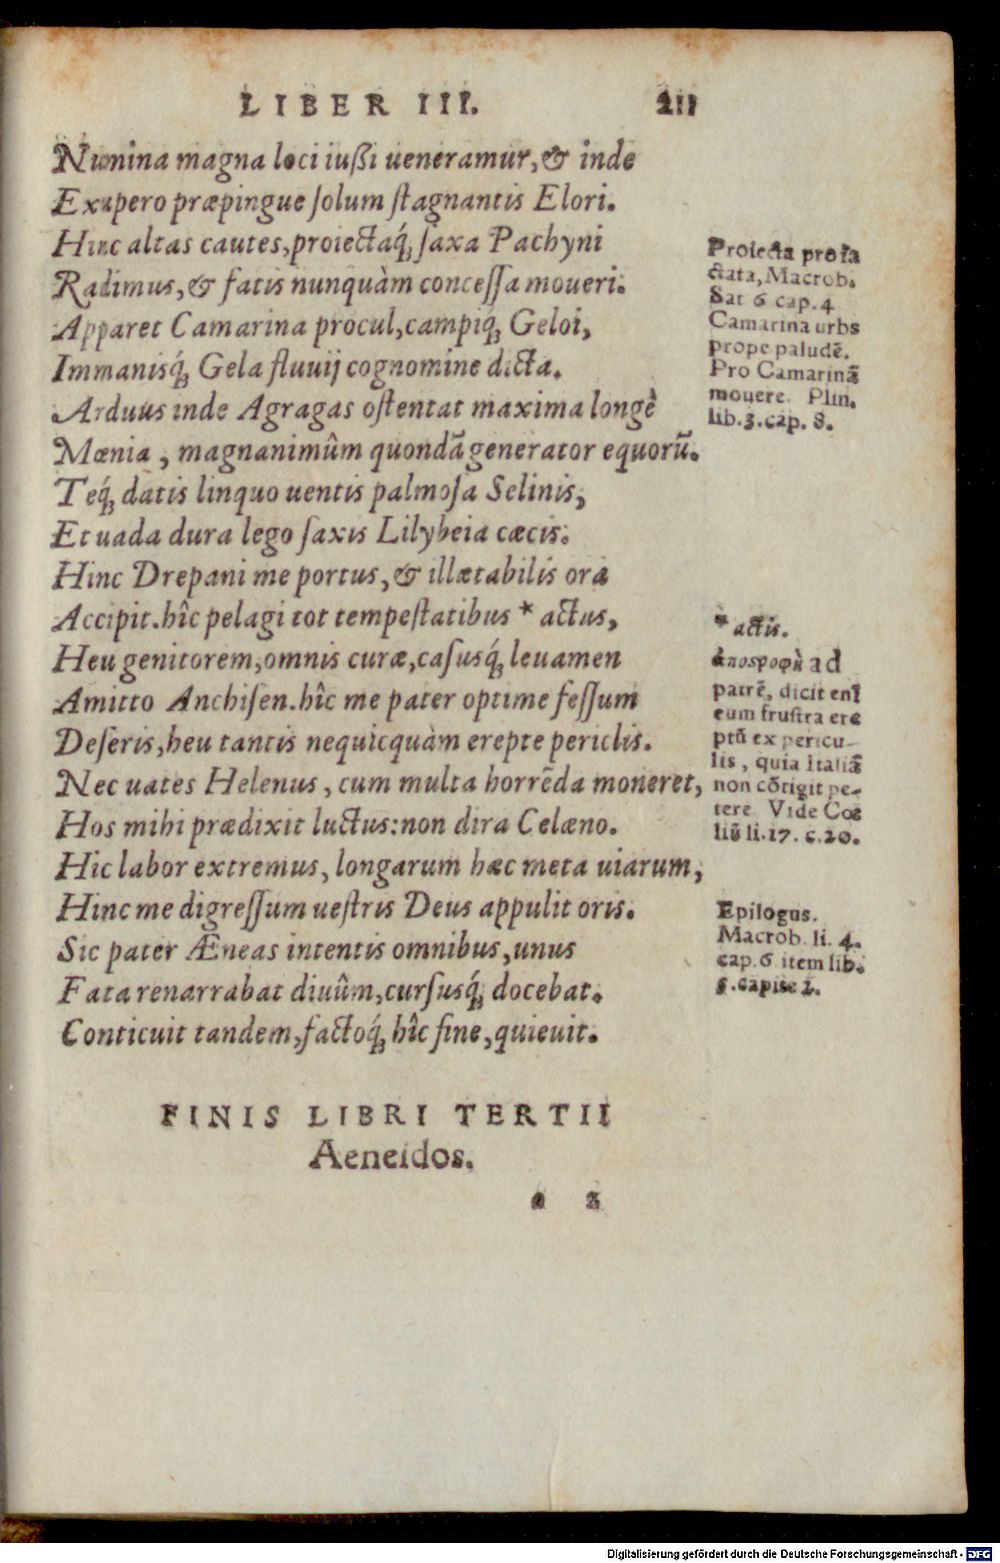 LIBER III. 211
Numina magna loci iußi ueneramur, & inde
Exupero præpingue ſolum ſtagnantis Elori.
Hinc altas cautes, proiectaq́; ſaxa Pachyni
Radimus, & fatis nunquàm conceſſa moueri.
Apparet Camarina procul, campiq́; Geloi,
Immanisq́; Gela fluuij cognomine dicta.
Arduus inde Agragas oſtentat maxima longè
Mœnia, magnanimûm quondā generator equorū.
Teq́; datis linquo uentis palmoſa Selinis,
Et uada dura lego ſaxis Lilybeia cæcis.
Hinc Drepani me portus, & illætabilis ora
Accipit. hîc pelagi tot tempeſtatibus * actus,
Heu genitorem, omnis curæ, caſusq́; leuamen
Amitto Anchiſen. hîc me pater optime feſſum
Deſeris, heu tantis nequicquàm erepte periclis.
Nec uates Helenus, cum multa horrēda moneret,
Hos mihi prædixit luctus: non dira Celæno.
Hic labor extremus, longarum hæc meta uiarum,
Hinc me digreſſum ueſtris Deus appulit oris.
Sic pater Æneas intentis omnibus, unus
Fata renarrabat diuûm, curſusq́; docebat.
Conticuit tandem, factoq́; hîc fine, quieuit.
Proiecta pro ia
ctata, Macrob.
Sat 6 cap. 4
Camarina urbs
prope paludē.
Pro Camarinā
mouere. Plin.
lib. 3. cap. 8.
* actis.
ἀποστροφὴ ad
patrē, dicit enī
eum fruſtra ere
ptū ex pericu-
lis, quia Italiā
non cōtigit pe-
tere. Vide Cœ
liū li. 17. c. 20.
Epilogus.
Macrob. li. 4.
cap. 6 item lib.
5. capite 2.
FINIS LIBRI TERTII
Aeneidos.
2
Digitalisierung gefördert durch die Deutsche Forschungsgemeinschaft - DFG